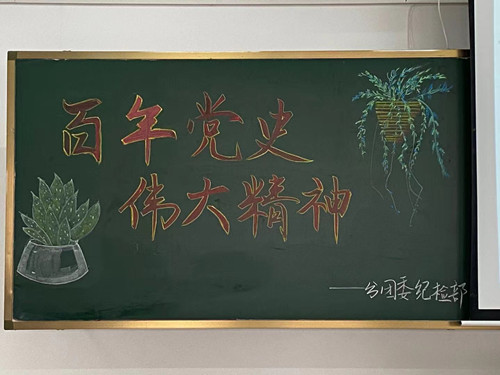 百年党史
伟大精神
——分团委纪检部